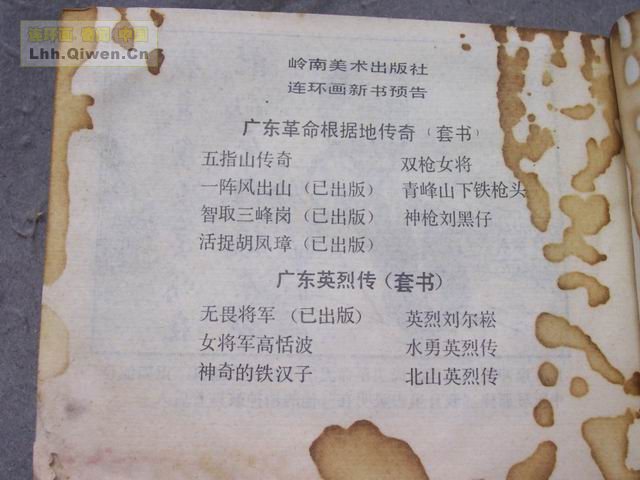 连环画 看图 中国
Lhh.Qiwen.Cn
岭南美术出版社
连环画新书预告
广东革命根据地传奇（套书）
五指山传奇 双枪女将
一阵风出山（已出版） 青峰山下铁枪头
智取三峰岗（已出版） 神枪刘黑仔
活捉胡凤璋（已出版）
广东英烈传（套书）
无畏将军（已出版） 英烈刘尔崧
女将军高恬波 水勇英烈传
神奇的铁汉子 北山英烈传